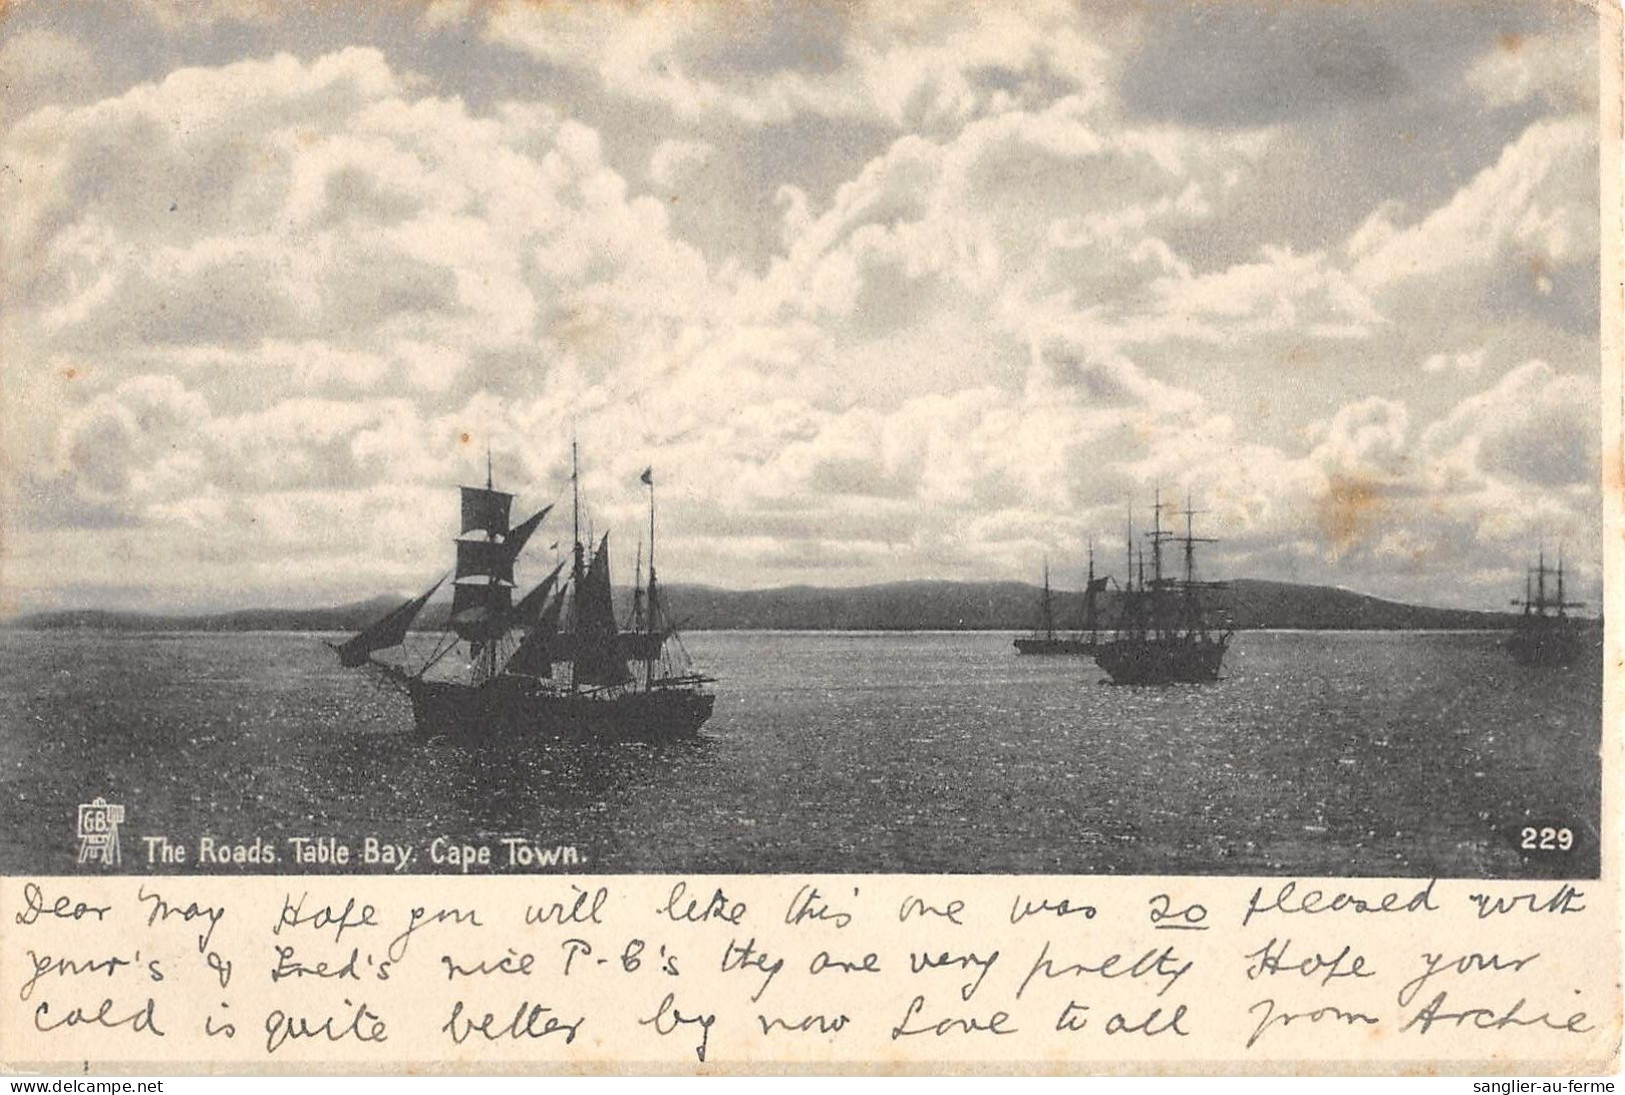 GB
The Roads. Table Bay. Cape Town.
229
Dear May Hope you will like this one was so pleased with
your's & Fred's nice P-C's they are very pretty Hope your
cold is quite better by now Love to all from Archie
www.delcampe.net
sanglier-au-ferme